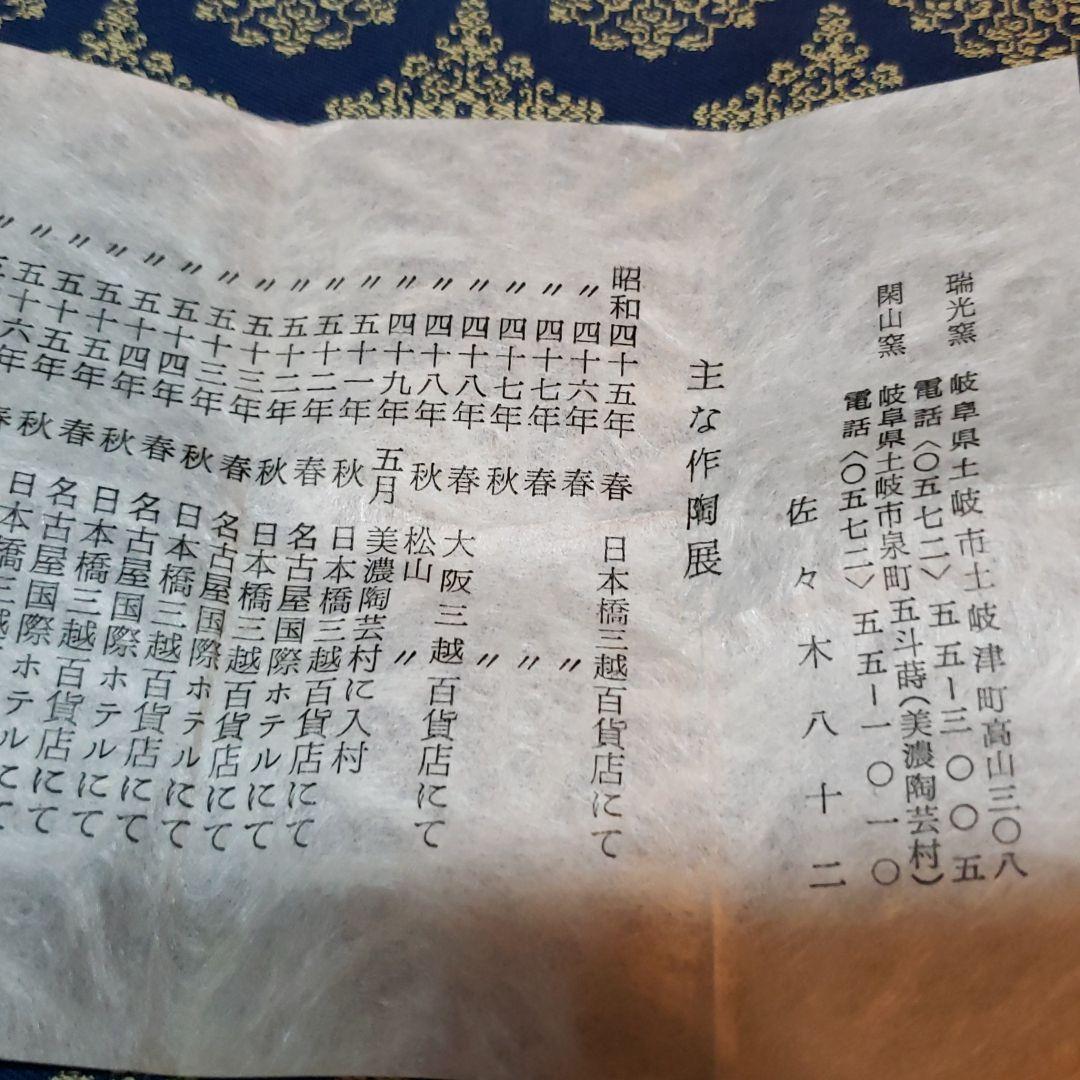 瑞光窯 岐阜県土岐市土岐津町高山三〇八
電話〈〇五七二〉五五ー三〇〇五
閑山窯 岐阜県土岐市泉町五斗蒔(美濃陶芸村)
電話〈〇五七二〉五五ー一〇一〇
佐々木八十二
主な作陶展
昭和四十五年 春 日本橋三越百貨店にて
〃 四十六年 春 〃
〃 四十七年 春 〃
〃 四十七年 秋 〃
〃 四十八年 春 大阪三越百貨店にて
〃 四十八年 秋 松山 〃
〃 四十九年 五月 美濃陶芸村に入村
〃 五十一年 秋 日本橋三越百貨店にて
〃 五十二年 春 名古屋国際ホテルにて
〃 五十二年 秋 日本橋三越百貨店にて
〃 五十三年 春 名古屋国際ホテルにて
〃 五十三年 秋 日本橋三越百貨店にて
〃 五十四年 春 名古屋国際ホテルにて
〃 五十四年 秋 日本橋三越百貨店にて
〃 五十五年 春 名古屋国際ホテルにて
〃 五十五年 秋 日本橋三越
〃 五十六年 春